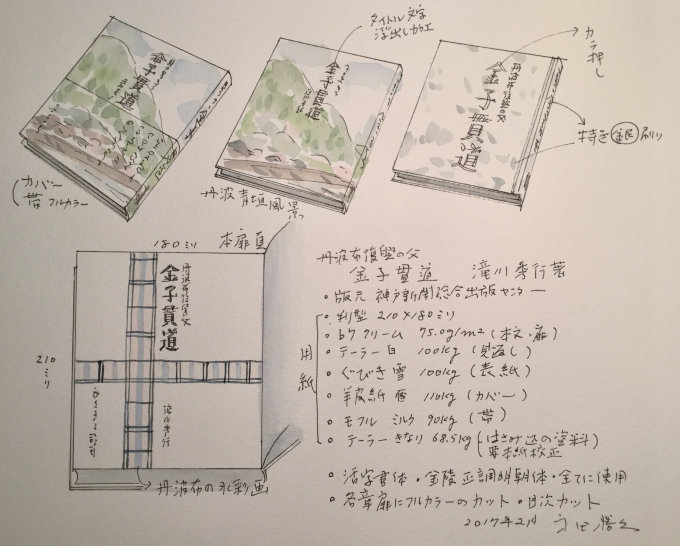 金子貫道
タイトル文字
浮出し加工
金子貫道
カラ
押し
丹波布復興の父
金子貫道
特色銀刷り
カバー
帯 フルカラー
丹波青垣風景
180ミリ 本扉頁
210ミリ
丹波布復興の父
金子貫道
滝川秀行
丹波布の水彩画
丹波布復興の父
金子貫道 滝川秀行著
・版元 神戸新聞総合出版センター
用紙
・判型 210×180ミリ
・b7クリーム 75.0g/m2(本文・扉)
・テーラー白 100kg(見返し)
・ぐびき 雪 100kg(表紙)
・羊皮紙 雪 110kg(カバー)
・モフル ミルク 90kg(帯)
・テーラー きなり 68.5kg
・活字書体・金陵正調明朝体・全てに使用
・各章扉にフルカラーのカット・目次カット
2017年2月